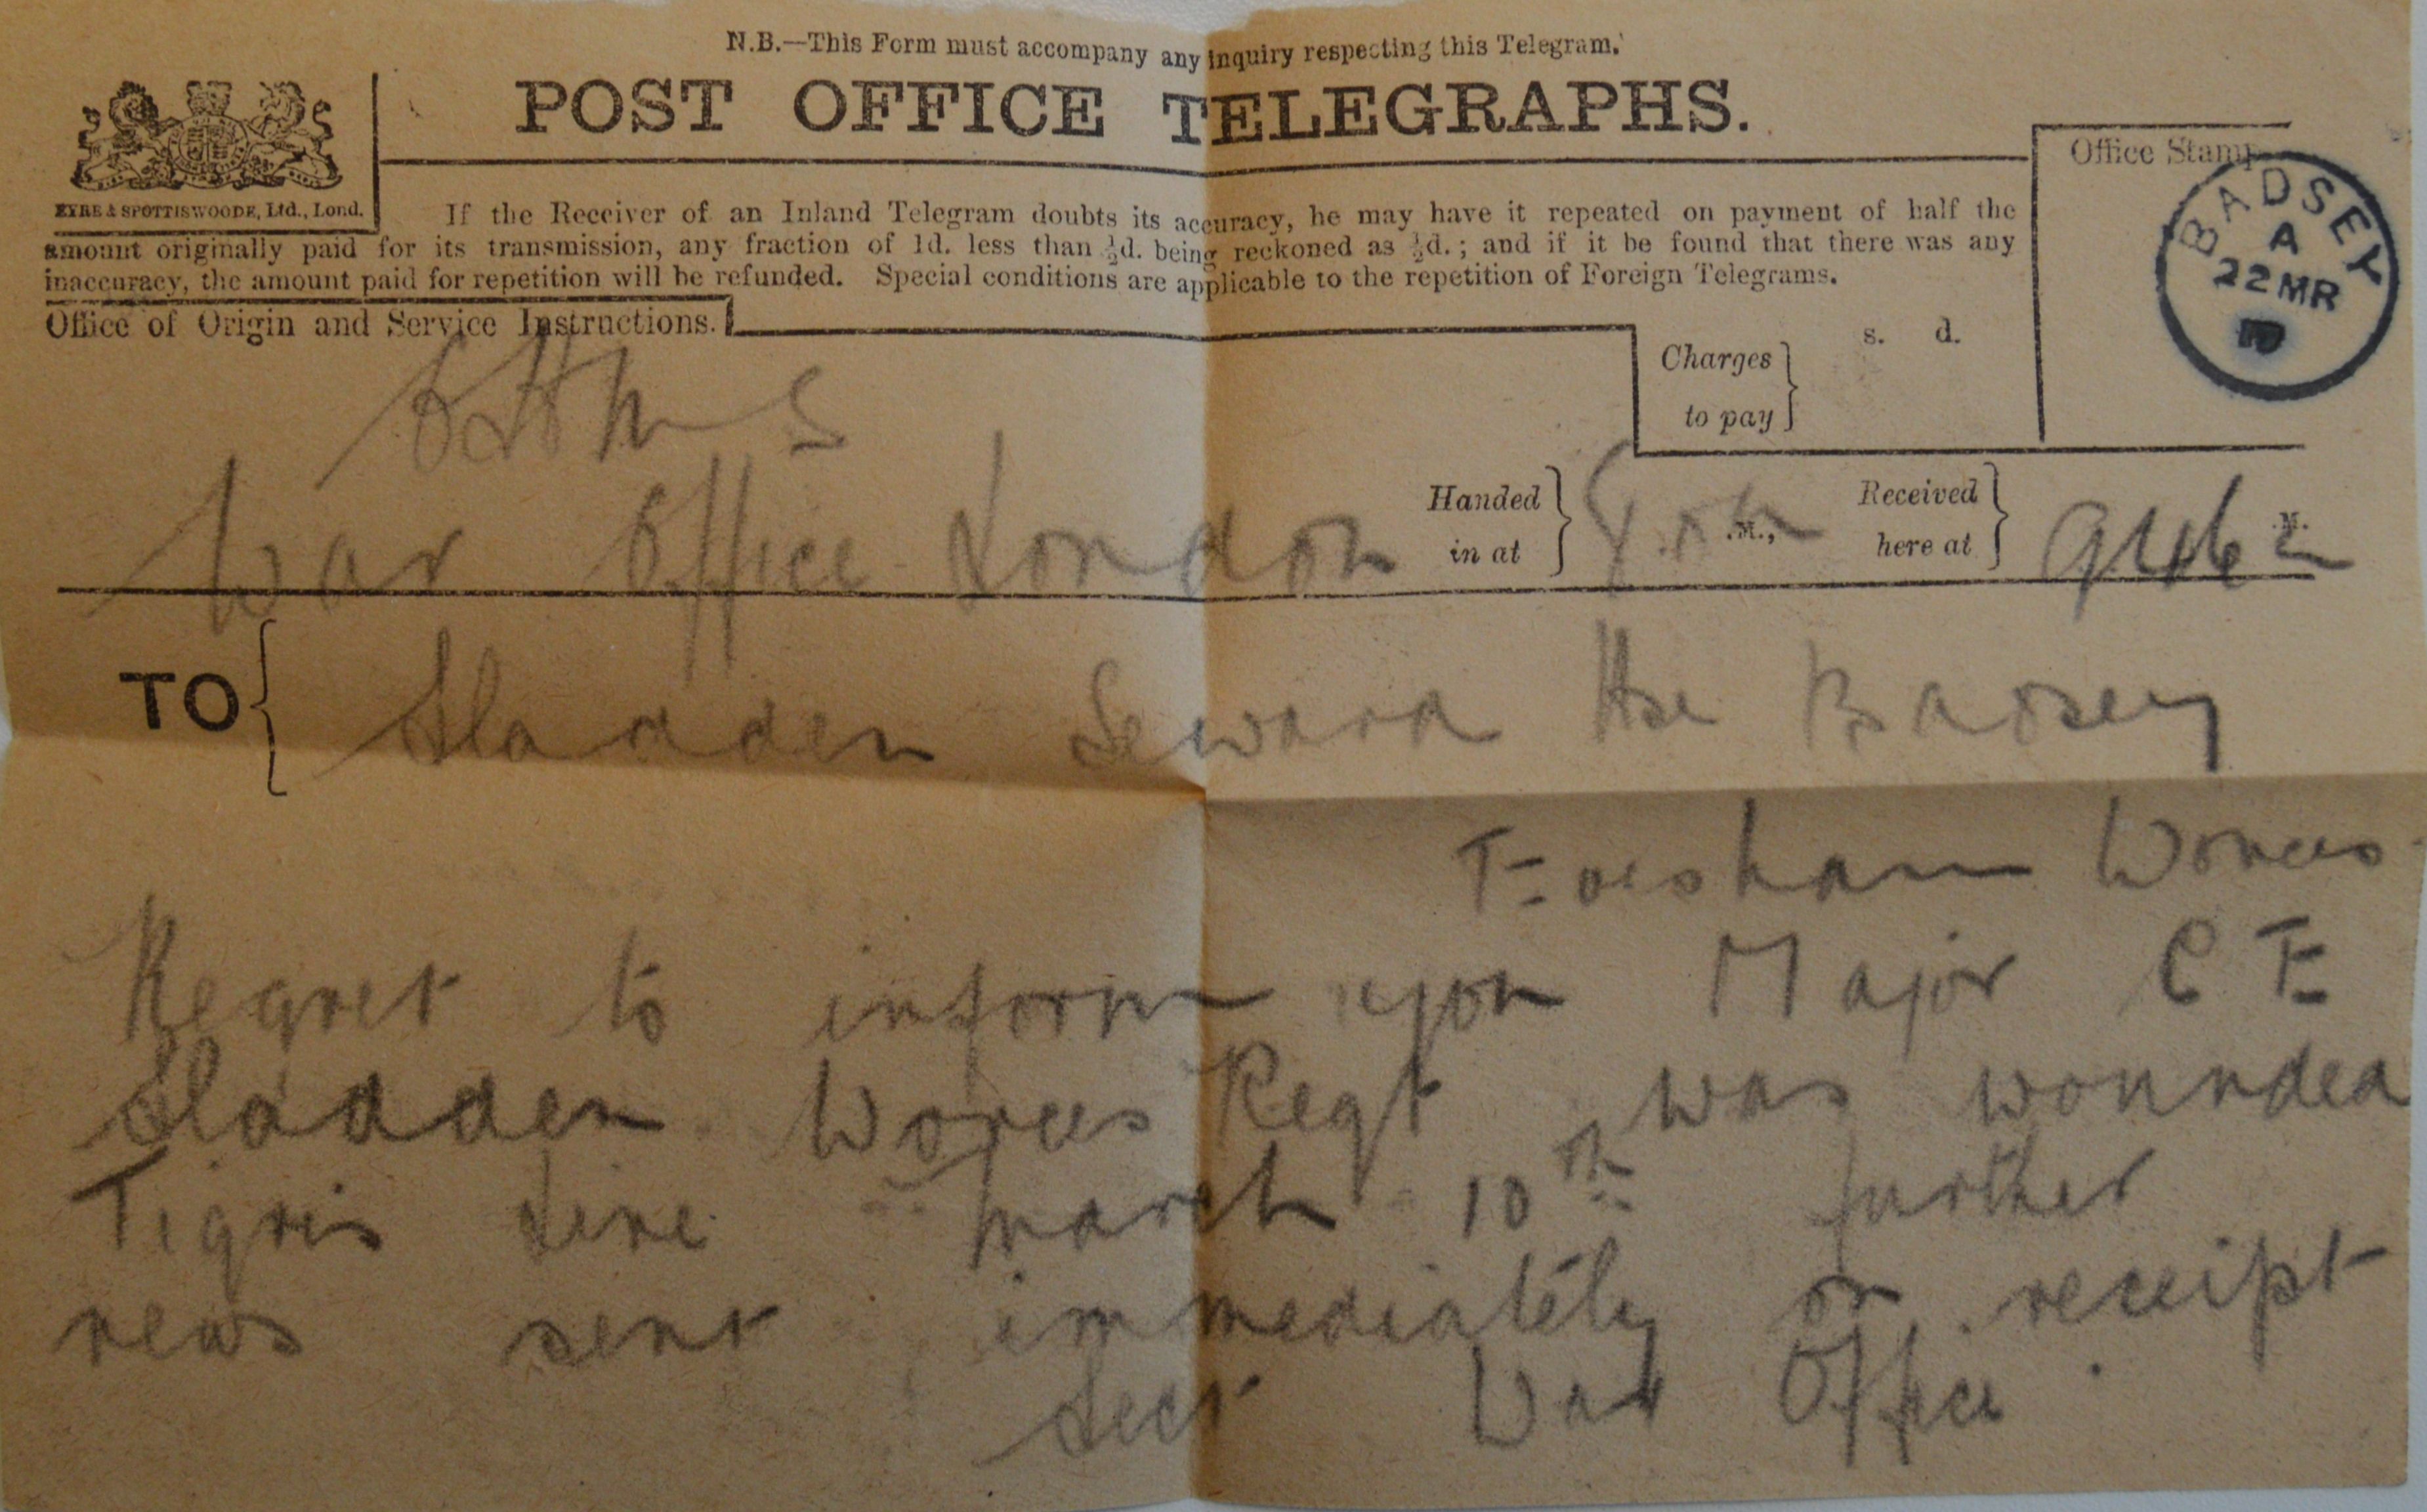 N.B.—This Form must accompany any inquiry respecting this Telegram.
POST OFFICE TELEGRAPHS.
EYRE & SPOTTISWOODE, Ltd., Lond.
Office Stamp
BADSEY
A
22 MR
If the Receiver of an Inland Telegram doubts its accuracy, he may have it repeated on payment of half the
amount originally paid for its transmission, any fraction of 1d. less than ½d. being reckoned as ½d.; and if it be found that there was any
inaccuracy, the amount paid for repetition will be refunded. Special conditions are applicable to the repetition of Foreign Telegrams.
Office of Origin and Service Instructions.
Charges to pay } s. d.
O H M S
War Office London
Handed in at } .M.,
Received here at } M.
TO { Sladden Seward Hse Badsey
Evesham Worces
Regret to inform you Major C E
Sladden Worces Regt was wounded
Tigris line March 10th further
news sent immediately on receipt
Secy War Office